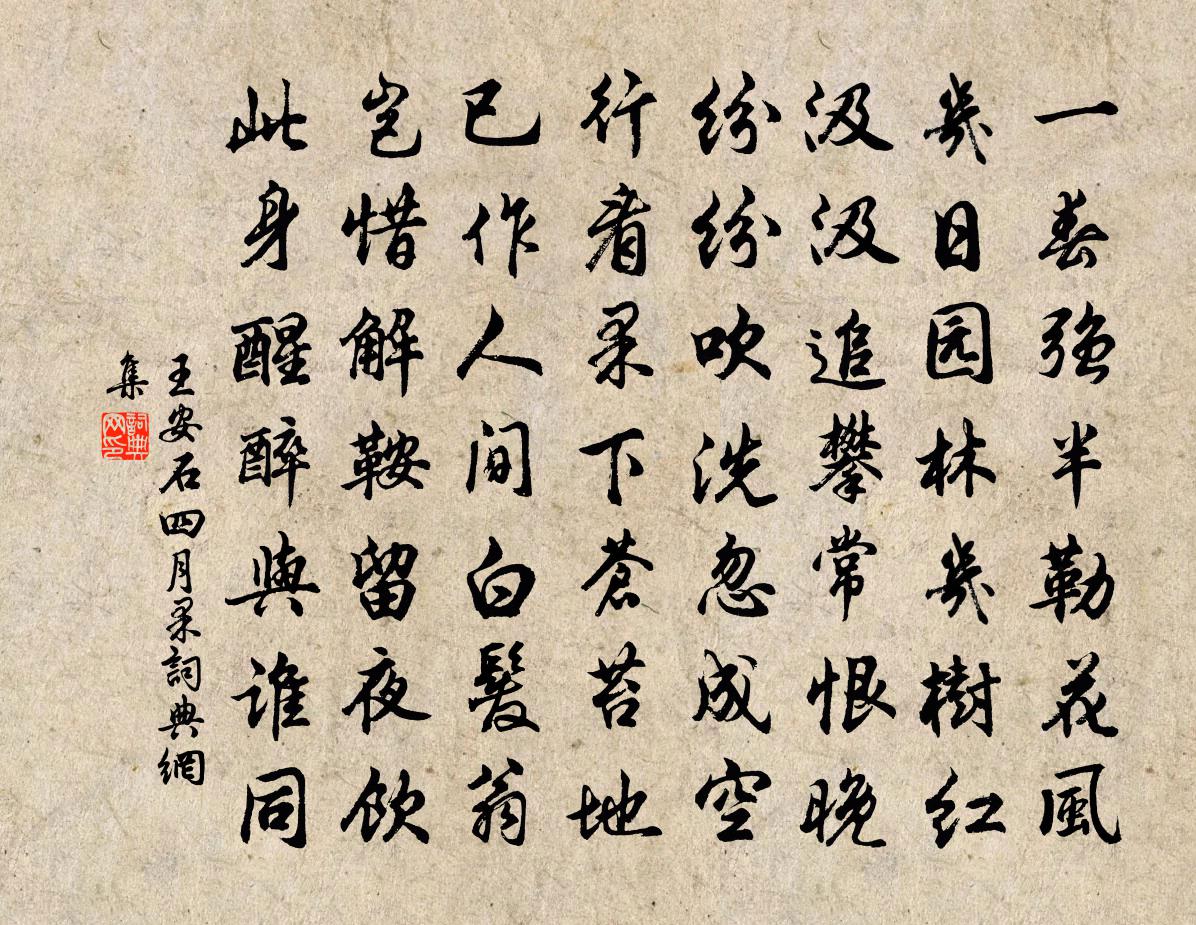 一春強半勒花風
幾日园林幾樹红
汲汲追攀常恨晚
纷纷吹洗忽成空
行看果下蒼苔地
已作人间白髮翁
岂惜解鞍留夜饮
此身醒醉與谁同
王安石四月果詞典網
集
詞典
网印